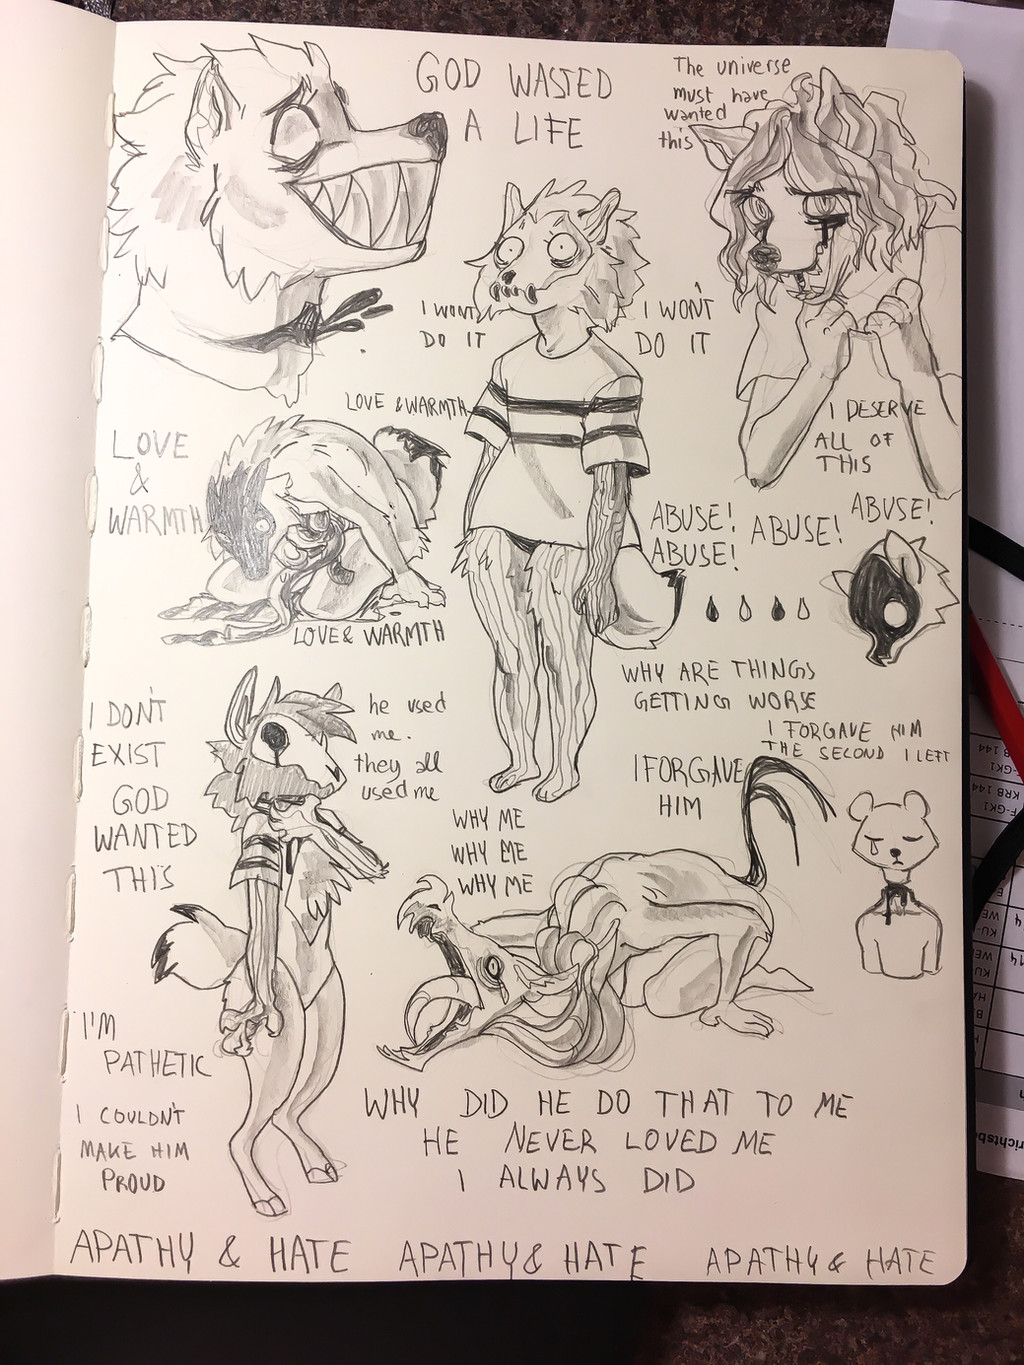 GOD WASTED
A LIFE
The universe
must have
wanted
this
I WON'T
DO IT
I WON'T
DO IT
LOVE & WARMTH
I DESERVE
ALL OF
THIS
LOVE
&
WARMTH
LOVE & WARMTH
ABUSE!
ABUSE!
ABUSE!
ABUSE!
WHY ARE THINGS
GETTING WORSE
I FORGAVE HIM
THE SECOND I LEFT
I FORGAVE
HIM
I DON'T
EXIST
GOD
WANTED
THIS
he used
me.
they all
used me
WHY ME
WHY ME
WHY ME
I'M
PATHETIC
I COULDN'T
MAKE HIM
PROUD
WHY DID HE DO THAT TO ME
HE NEVER LOVED ME
I ALWAYS DID
APATHY & HATE APATHY & HATE APATHY & HATE
KRB 144